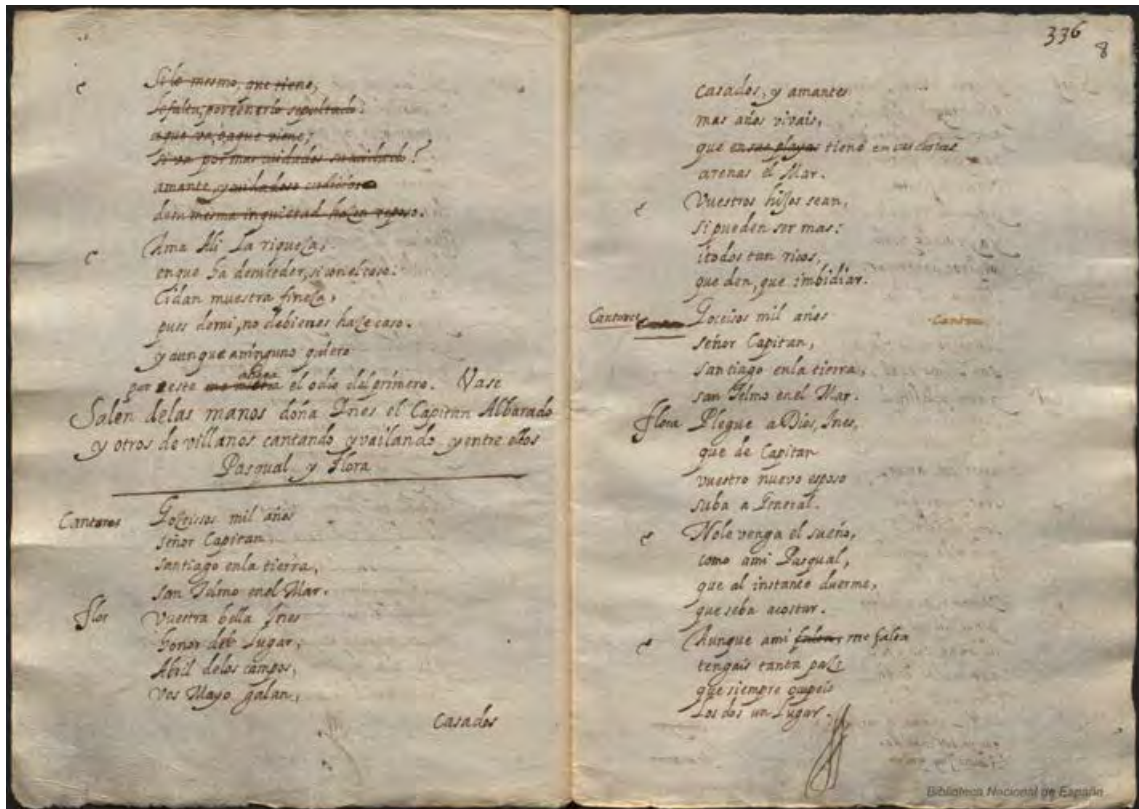 Si lo mesmo, que tiene,
le falta, por tenerlo sepultado:
a que va, o a que viene,
si va por mar cuidados su cuidado?
amante, y cuidadoso
de su mesma inquietud hazen reposo.
Ama Ali La riqueza,
en que ha de suceder, si con el caso:
Cidan muestra fineza,
pues de mi, no de bienes haze caso.
y aunque a ninguno quiero
por este el odio del primero. Vase
Salen de las manos doña Ynes el Capitan Albarado
y otros de villanos cantando, y vailando, y entre ellos
Pasqual, y Flora
Cantares Gozeisos mil años
señor Capitan,
santiago en la tierra,
san Telmo en el Mar.
Flor Vuestra bella Ynes
honor del Lugar,
Abril de los campos,
Vos Mayo galan,
Casados
336
8
Casados, y amantes
mas años vivais,
que en sus playas tiene en
arenas el Mar.
Vuestros hijos sean,
si pueden ser mas:
i todos tan ricos,
que den, que imbidiar.
Cantares Gozeisos mil años Cantan
señor Capitan,
santiago en la tierra,
san Telmo en el Mar.
Flora Plegue a Dios, Ines,
que de Capitan
vuestro nuevo esposo
suba a General.
No le venga el sueño,
como a mi Pasqual,
que al instante duerme,
que se ba acostar.
Aunque a mi falta, me falta
tengais tanta paz
que siempre qupais
Los dos un Lugar.
Biblioteca Nacional de España